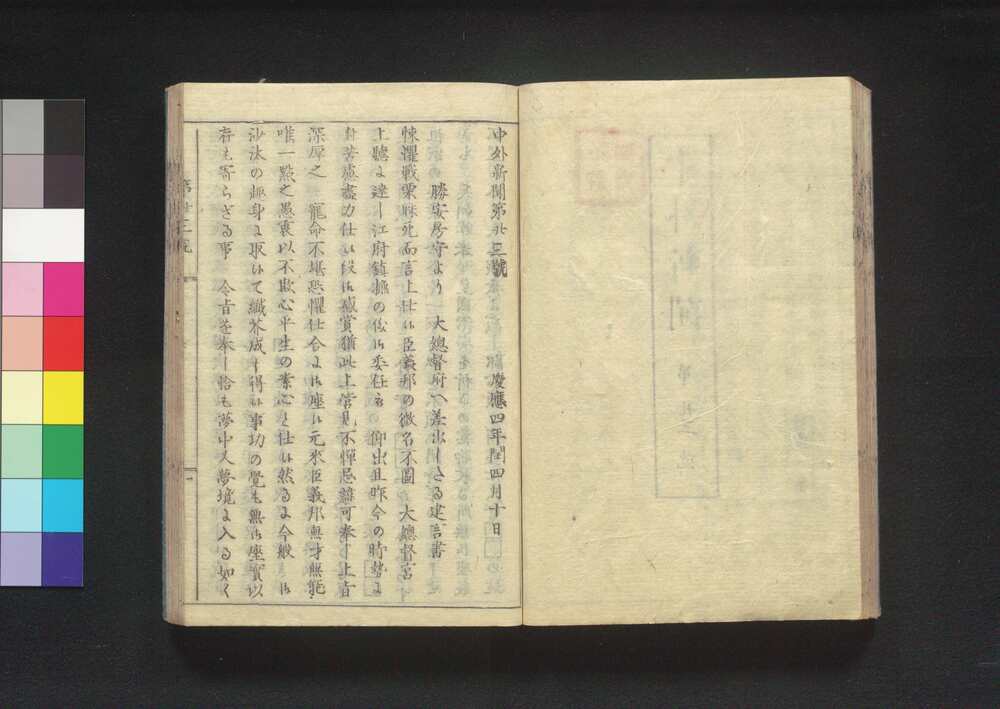 中外新聞第廿三號 慶應四年閏四月十日
勝安房守より大總督府へ差出したる建言書
悚懼戰栗昧死而言上仕候臣義邦の微名不圖 大總督宮
上聽に達し江府鎮撫の儀御委任被 仰出且昨今の時勢に
苦慮盡力仕候段御感賞猶此上常見不憚忌諱可奉上旨
深厚之 寵命不堪恐懼仕合に御座候元來臣義邦無才無能
唯一點之愚衷以不欺心平生の素心と仕候然るに今般 御
沙汰の趣身に取候て纎芥成し得候事功の覺も無御座實以
存も寄らざる事 令旨を奉し恰も夢中又夢境に入る如く
第廿三號